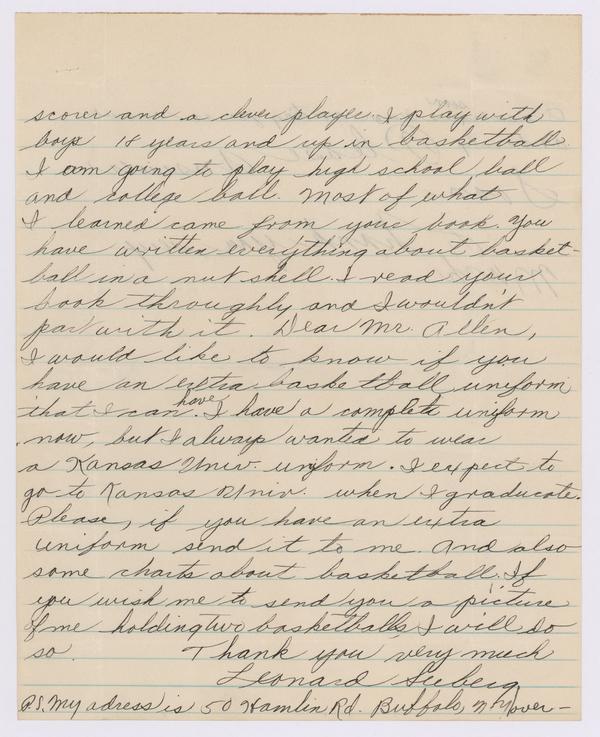 scorer and a clever player. I play with
boys 18 years and up in basketball.
I am going to play high school ball
and college ball. Most of what
I learned came from your book. You
have written everything about basket-
ball in a nut shell. I read your
book throughly and I wouldn't
part with it. Dear Mr. Allen,
I would like to know if you
have an extra basketball uniform
that I can have. I have a complete uniform
now, but I always wanted to wear
a Kansas Univ. uniform. I expect to
go to Kansas Univ. when I graduate.
Please, if you have an extra
uniform send it to me. And also
some charts about basketball. If
you wish me to send you a picture
of me holding two basketballs I will do
so. Thank you very much
Leonard
P.S. My adress is 50 Hamlin Rd. Buffalo, N.Y. over-